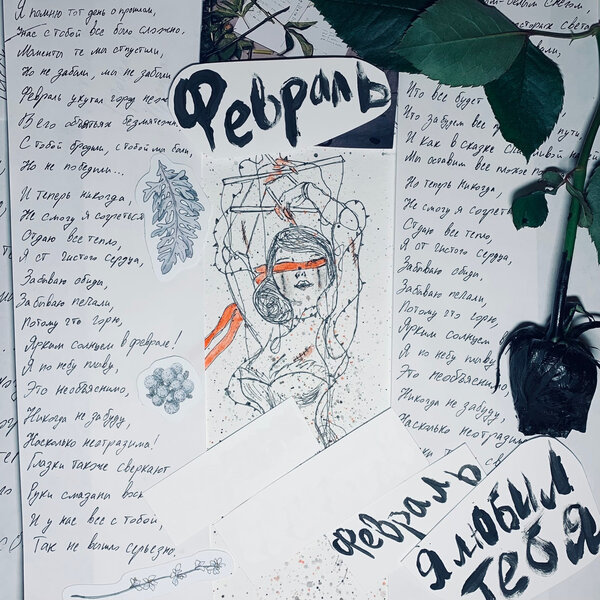 Я помню тот день о прошлом,
У нас с тобой все было сложно,
Моменты те мы отпустили,
Но не забыли, мы не забыли
Февраль укутал город
В его объятьях безмятежн
С тобой бродили, с тобой мы были,
Но не победили...
И теперь никогда,
Не смогу я согреться
Отдаю все тепло,
Я от чистого сердца,
Забываю обиды,
Забываю печали,
Потому что горю,
Ярким солнцем в феврале!
Я по небу плыву,
Это необъяснимо,
Никогда не забуду,
Насколько неотразима!
Глазки также сверкают
Руки смазаны
И у нас все с тобой,
Так не вышло серьезно
Февраль
светом,
Что все будет
Что забудем все пути,
И как в сказке
Мы оставим все плохое
Но теперь никогда,
Не смогу я согреться
Отдаю все тепло,
Я от чистого сердца,
Забываю обиды,
Забываю печали,
Потому что горю,
Ярким солнцем в
Я по небу плыву
Это необъяснимо,
Никогда не забуду,
Насколько неотразим
Февраль
Я любил
тебя